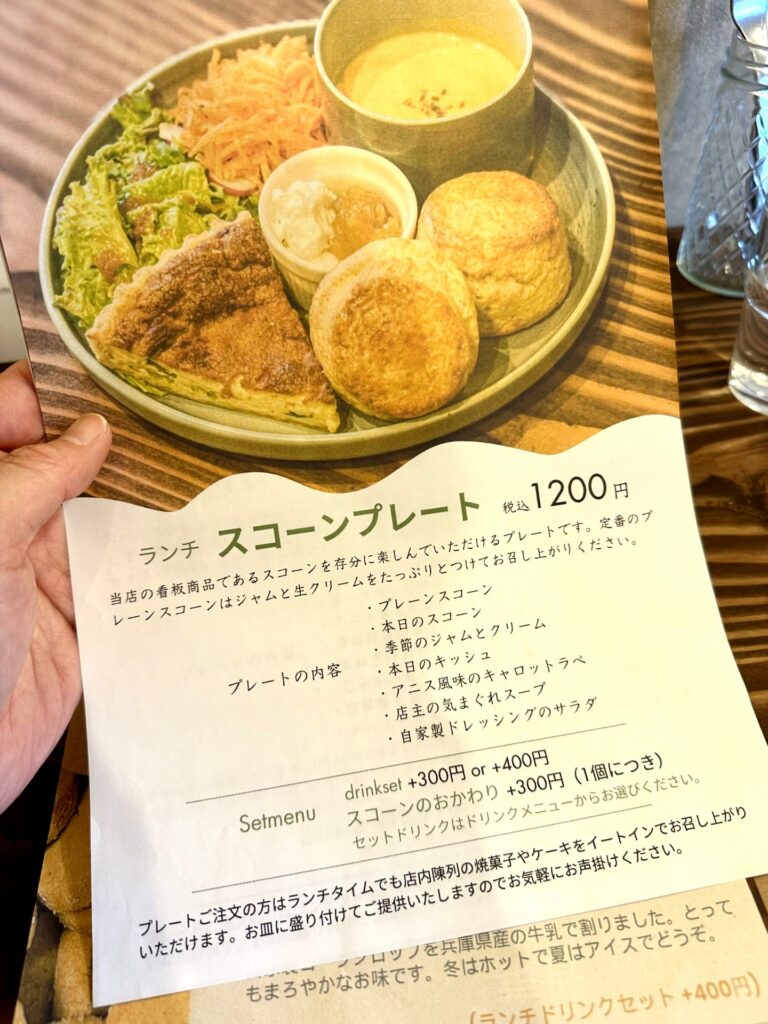 ランチ スコーンプレート 税込1200円
当店の看板商品であるスコーンを存分に楽しんでいただけるプレートです。定番のプ
レーンスコーンはジャムと生クリームをたっぷりとつけてお召し上がりください。
プレートの内容
・プレーンスコーン
・本日のスコーン
・季節のジャムとクリーム
・本日のキッシュ
・アニス風味のキャロットラペ
・店主の気まぐれスープ
・自家製ドレッシングのサラダ
Setmenu
drinkset +300円 or +400円
スコーンのおかわり +300円（1個につき）
セットドリンクはドリンクメニューからお選びください。
プレートご注文の方はランチタイムでも店内陳列の焼菓子やケーキをイートインでお召し上がり
いただけます。お皿に盛り付けてご提供いたしますのでお気軽にお声掛けください。
シロップを兵庫県産の牛乳で割りました。とって
もまろやかなお味です。冬はホットで夏はアイスでどうぞ。
（ランチドリンクセット +400円）